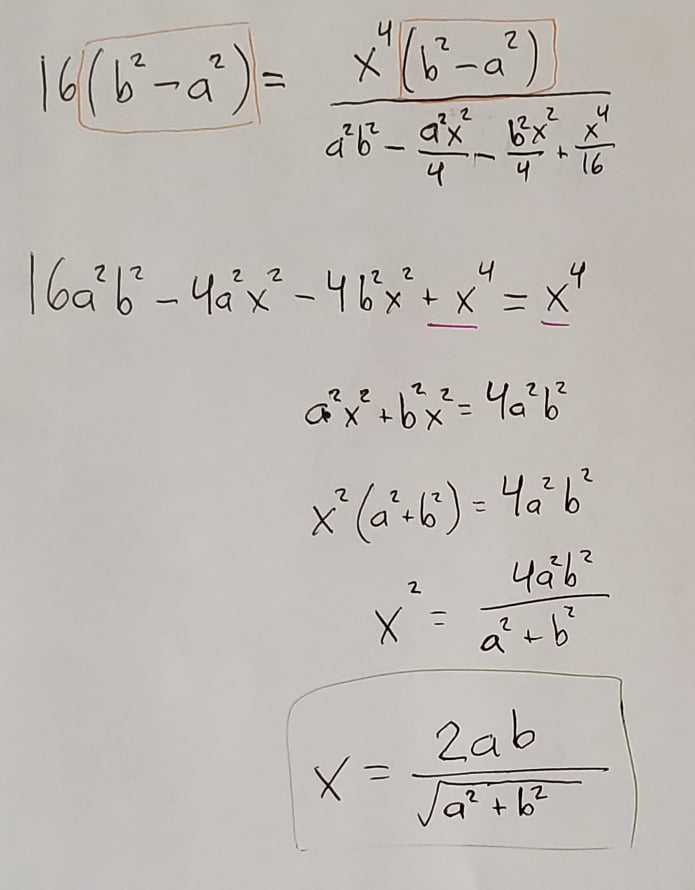 16(b² - a²) = x⁴(b² - a²) / (a²b² - a²x²/4 - b²x²/4 + x⁴/16)
16a²b² - 4a²x² - 4b²x² + x⁴ = x⁴
a²x² + b²x² = 4a²b²
x²(a² + b²) = 4a²b²
x² = 4a²b² / (a² + b²)
x = 2ab / √(a² + b²)